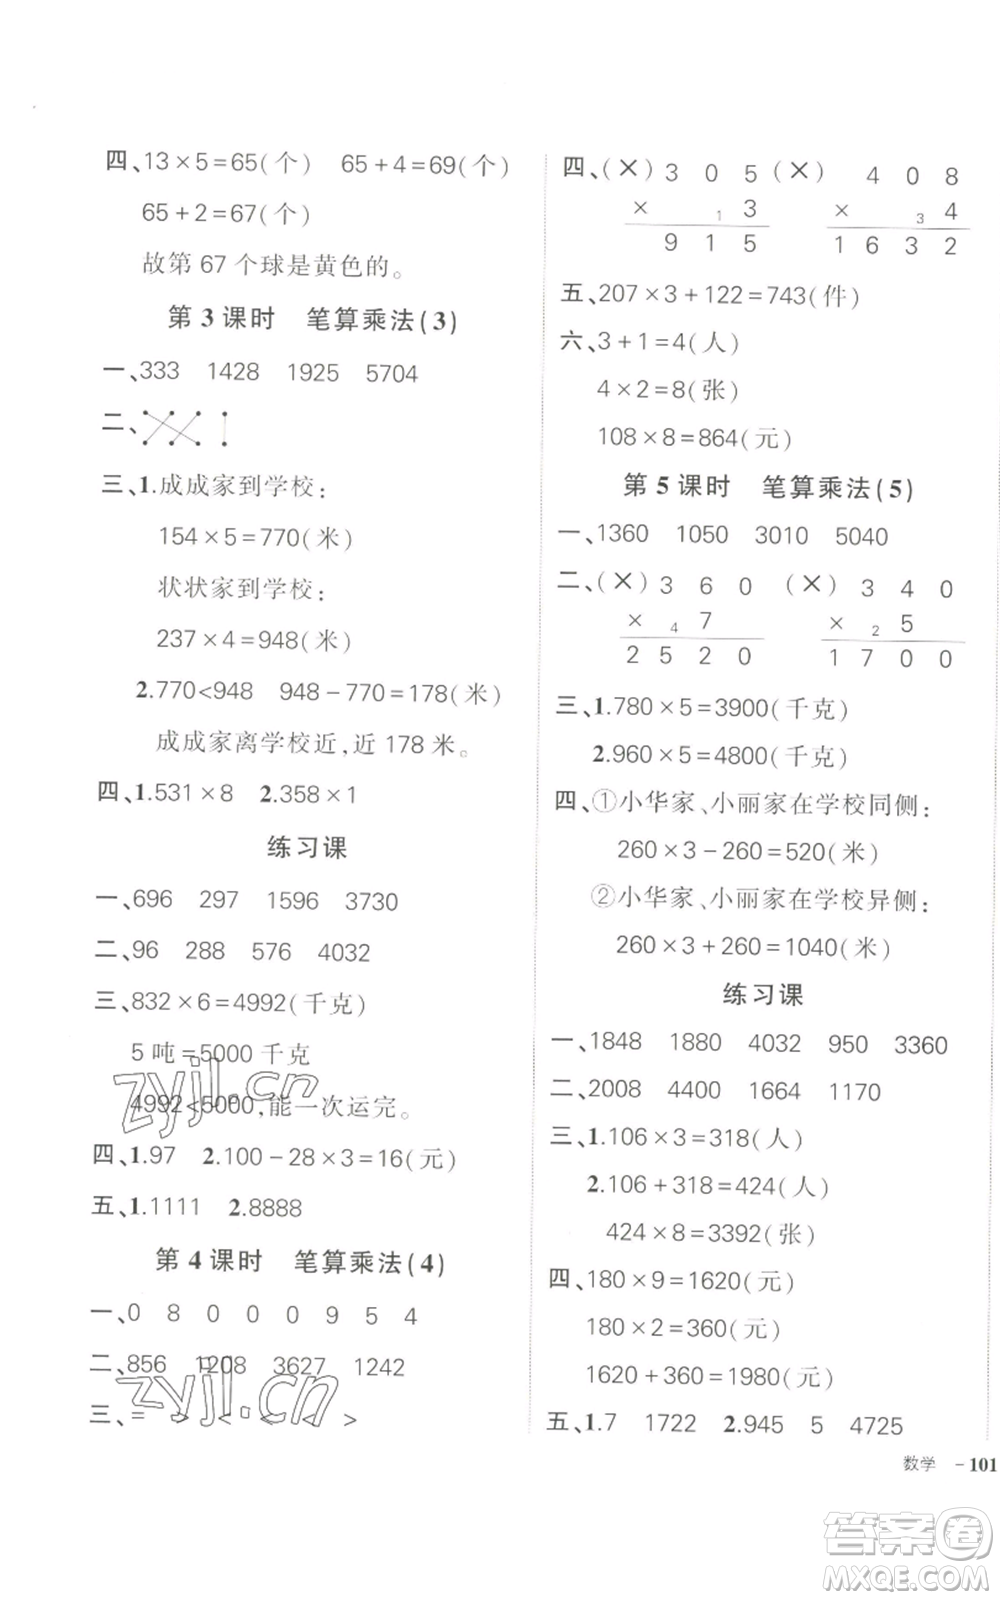 四、13×5=65(个)　65+4=69(个)
65+2=67(个)
故第 67 个球是黄色的。
第 3 课时　笔算乘法(3)
一、333　1428　1925　5704
二、
三、1.成成家到学校:
154×5=770(米)
状状家到学校:
237×4=948(米)
2.770<948　948-770=178(米)
成成家离学校近,近 178 米。
四、1.531×8　2.358×1
练习课
一、696　297　1596　3730
二、96　288　576　4032
三、832×6=4992(千克)
5 吨=5000 千克
4992<5000,能一次运完。
zyjl.cn
四、1.97　2.100-28×3=16(元)
五、1.1111　2.8888
第 4 课时　笔算乘法(4)
一、0　8　0　0　0　9　5　4
二、856　1208　3627　1242
zyjl.cn
三、=　>　<　<　>
四、(×) 3 0 5 (×) 4 0 8
× 1 3　× 3 4
9 1 5　1 6 3 2
五、207×3+122=743(件)
六、3+1=4(人)
4×2=8(张)
108×8=864(元)
第 5 课时　笔算乘法(5)
一、1360　1050　3010　5040
二、(×) 3 6 0　(×) 3 4 0
× 4 7　× 2 5
2 5 2 0　1 7 0 0
三、1.780×5=3900(千克)
2.960×5=4800(千克)
四、①小华家、小丽家在学校同侧:
260×3-260=520(米)
②小华家、小丽家在学校异侧:
260×3+260=1040(米)
练习课
一、1848　1880　4032　950　3360
二、2008　4400　1664　1170
三、1.106×3=318(人)
2.106+318=424(人)
424×8=3392(张)
四、180×9=1620(元)
180×2=360(元)
1620+360=1980(元)
五、1.7　1722　2.945　5　4725
数学　-101
答案卷
MXQE.COM